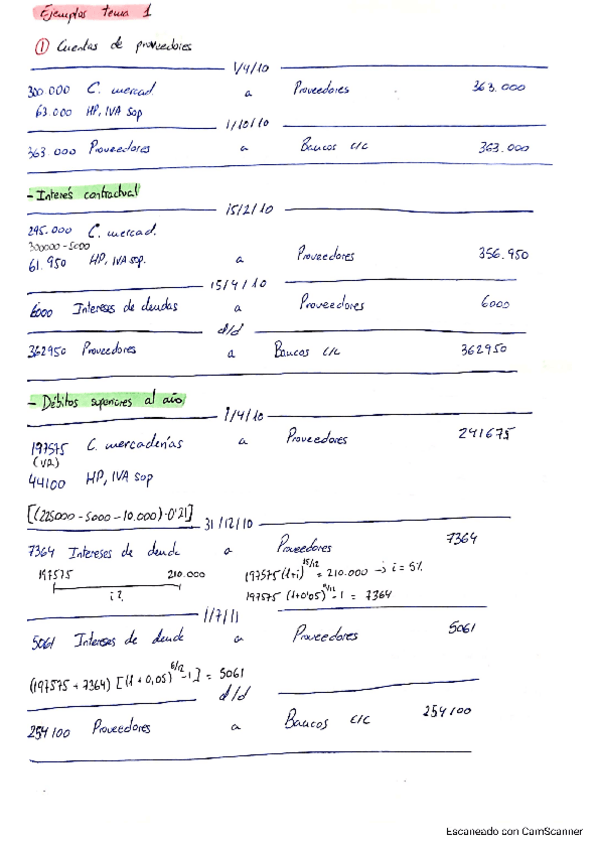 Ejemplos tema 1
① Cuentas de proveedores
1/4/10
300.000 C. mercad. a Proveedores 363.000
63.000 HP, IVA sop
1/10/10
363.000 Proveedores a Bancos c/c 363.000
- Interés contractual
15/2/10
295.000 C. mercad.
300000-5000
61.950 HP, IVA sop. a Proveedores 356.950
15/4/10
6000 Intereses de deudas a Proveedores 6000
d/d
362950 Proveedores a Bancos c/c 362950
- Débitos superiores al año
1/4/10
197575 C. mercaderías a Proveedores 241675
44100 HP, IVA sop
[(225000-5000-10.000)·0'21]
31/12/10
7364 Intereses de deuda a Proveedores 7364
197575 210.000 197575(1+i)^15/12 = 210.000 → i = 5%
i? 197575(1+0'05)^9/12 - 1 = 7364
1/7/11
5061 Intereses de deuda a Proveedores 5061
(197575 + 7364) [(1+0,05)^6/12 - 1] = 5061
d/d
254100 Proveedores a Bancos c/c 254100
Escaneado con CamScanner